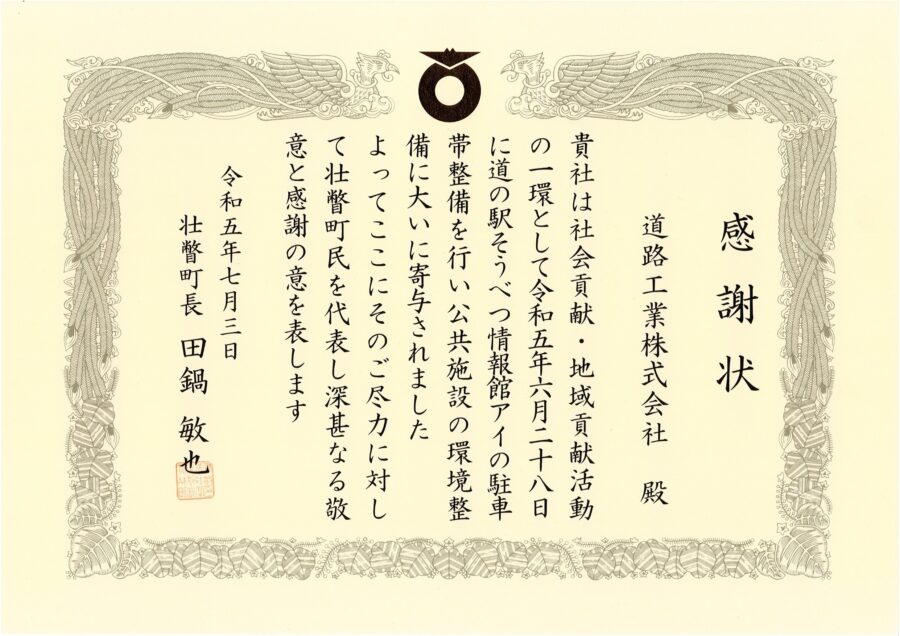 感謝状
道路工業株式会社 殿
貴社は社会貢献・地域貢献活動
の一環として令和五年六月二十八日
に道の駅そうべつ情報館アイの駐車
帯整備を行い公共施設の環境整
備に大いに寄与されました
よってここにそのご尽力に対し
て壮瞥町民を代表し深甚なる敬
意と感謝の意を表します
令和五年七月三日
壮瞥町長 田鍋 敏也